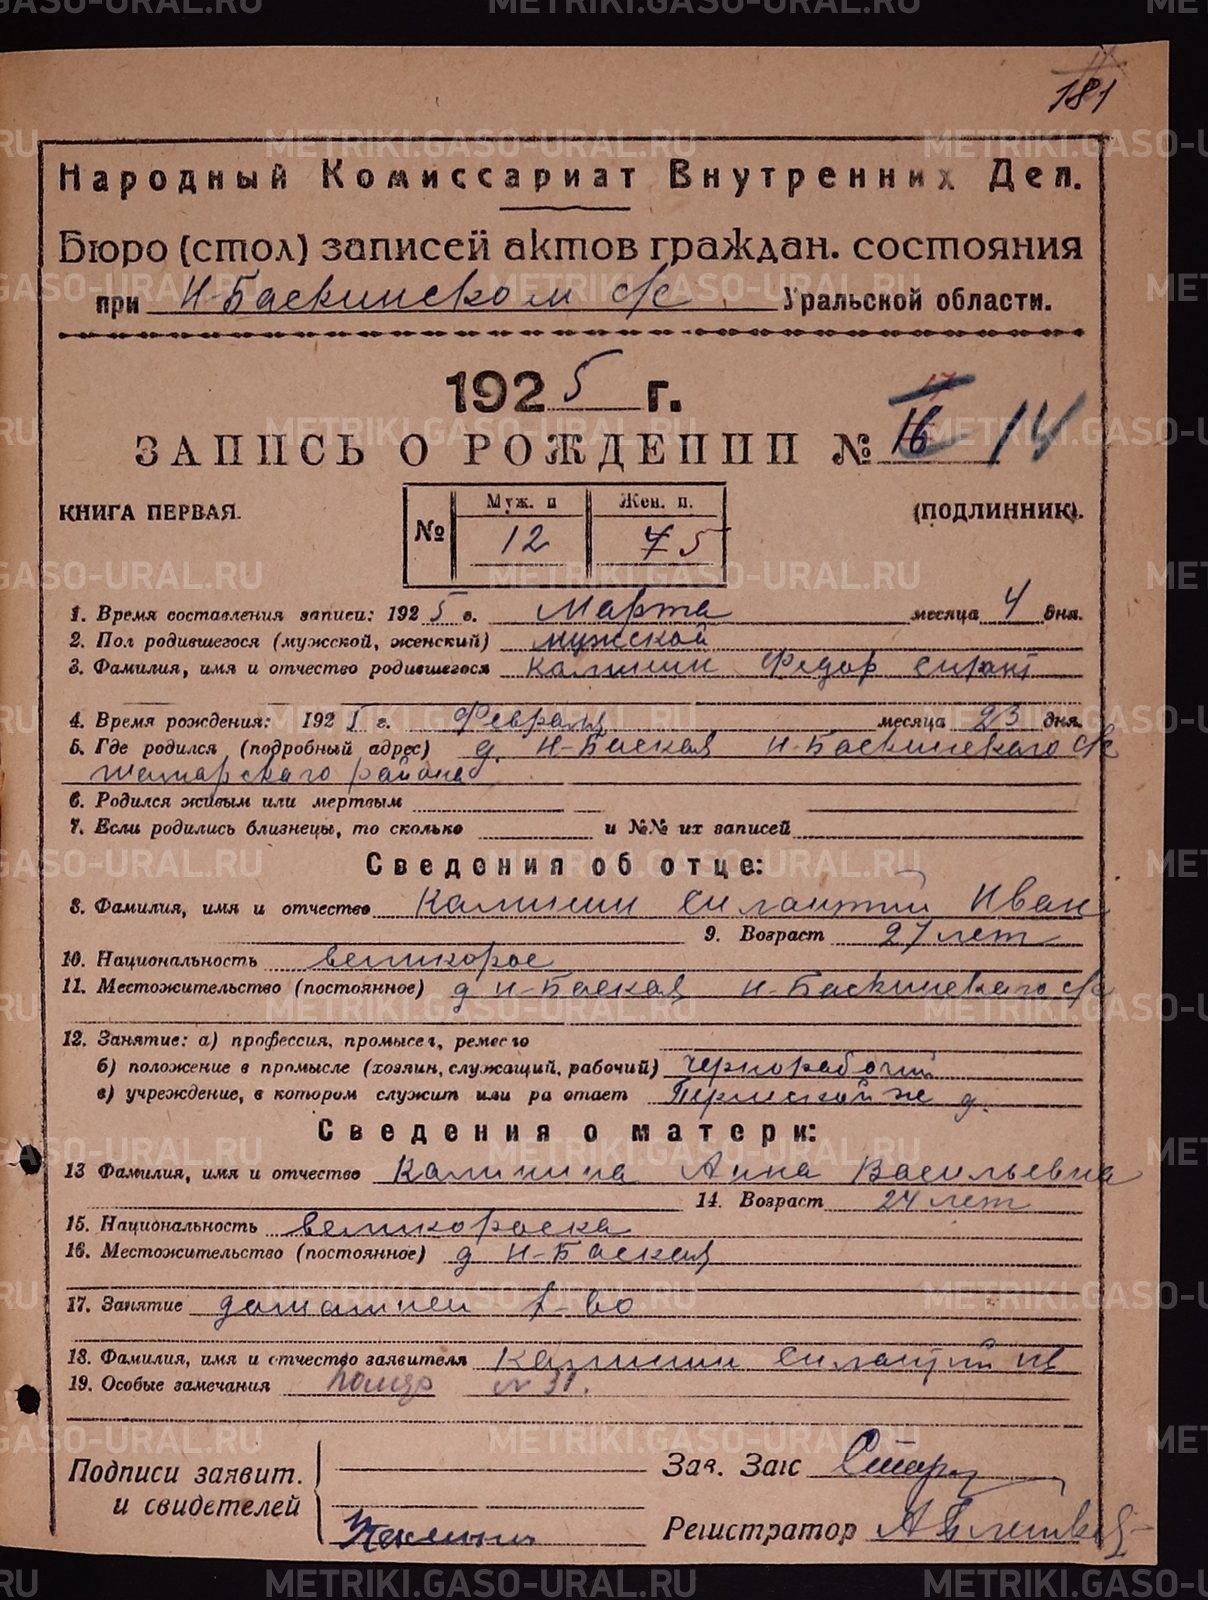 181
Народный Комиссариат Внутренних Дел.
Бюро (стол) записей актов граждан. состояния
при Н-Баскинском с/с Уральской области.
1925 г.
ЗАПИСЬ О РОЖДЕНИИ № 17 16 14
КНИГА ПЕРВАЯ. (ПОДЛИННИК).
Муж. п Жен. п.
№ 12 7 5
1. Время составления записи: 1925 г. Марта месяца 4 дня.
2. Пол родившегося (мужской, женский) мужской
3. Фамилия, имя и отчество родившегося Калинин Федор Силант
4. Время рождения: 1925 г. Февраля месяца 23 дня.
5. Где родился (подробный адрес) д. Н-Баская Н-Баскинскаго с/с
района
6. Родился живым или мертвым
7. Если родились близнецы, то сколько и №№ их записей
Сведения об отце:
8. Фамилия, имя и отчество Калинин Силантий Иван
9. Возраст 27 лет
10. Национальность великорос
11. Местожительство (постоянное) д Н-Баская Н-Баскинскаго с/с
12. Занятие: а) профессия, промысел, ремесло
б) положение в промысле (хозяин, служащий, рабочий) чернорабочий
в) учреждение, в котором служит или ра отает Пермской ж д.
Сведения о матери:
13 Фамилия, имя и отчество Калинина Анна Васильевна
14. Возраст 24 лет
15. Национальность великороска
16. Местожительство (постоянное) д Н-Баская
17. Занятие домашнее х-во
18. Фамилия, имя и отчество заявителя Калинин Силантий Ив
19. Особые замечания № 31.
Подписи заявит. Зав. Загс
и свидетелей
Калинин Регистратор
METRIKI.GASO-URAL.RU